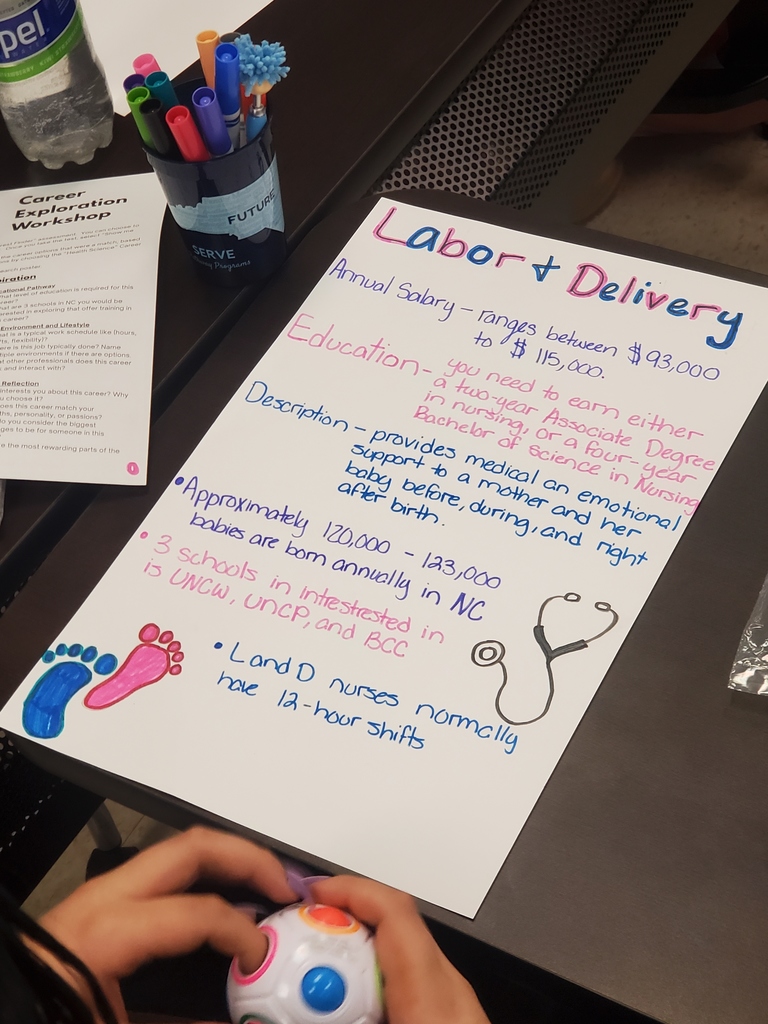 pel
Career
Exploration
Workshop
career options that were a match, based
for choosing the "Health Science" Career
search poster.
Pathway
level of education is required for this
career?
are 3 schools in NC you would be
interested in exploring that offer training in
career?
Environment and Lifestyle
is a typical work schedule like (hours,
flexibility)?
is this job typically done? Name
multiple environments if there are options.
other professionals does this career
and interact with?
Reflection
interests you about this career? Why
you choose it?
does this career match your
personality, or passions?
do you consider the biggest
to be for someone in this
are the most rewarding parts of the
FUTURE
SERVE
Programs
Labor & Delivery
Annual Salary - ranges between $93,000
to $115,000.
Education - you need to earn either
a two-year Associate Degree
in nursing, or a four-year
Bachelor of science in Nursing
Description - provides medical an emotional
support to a mother and her
baby before, during, and right
after birth.
• Approximately 120,000 - 123,000
babies are born annually in NC
• 3 schools in intrestrested in
is UNCW, UNCP, and BCC
• L and D nurses normally
have 12-hour shifts